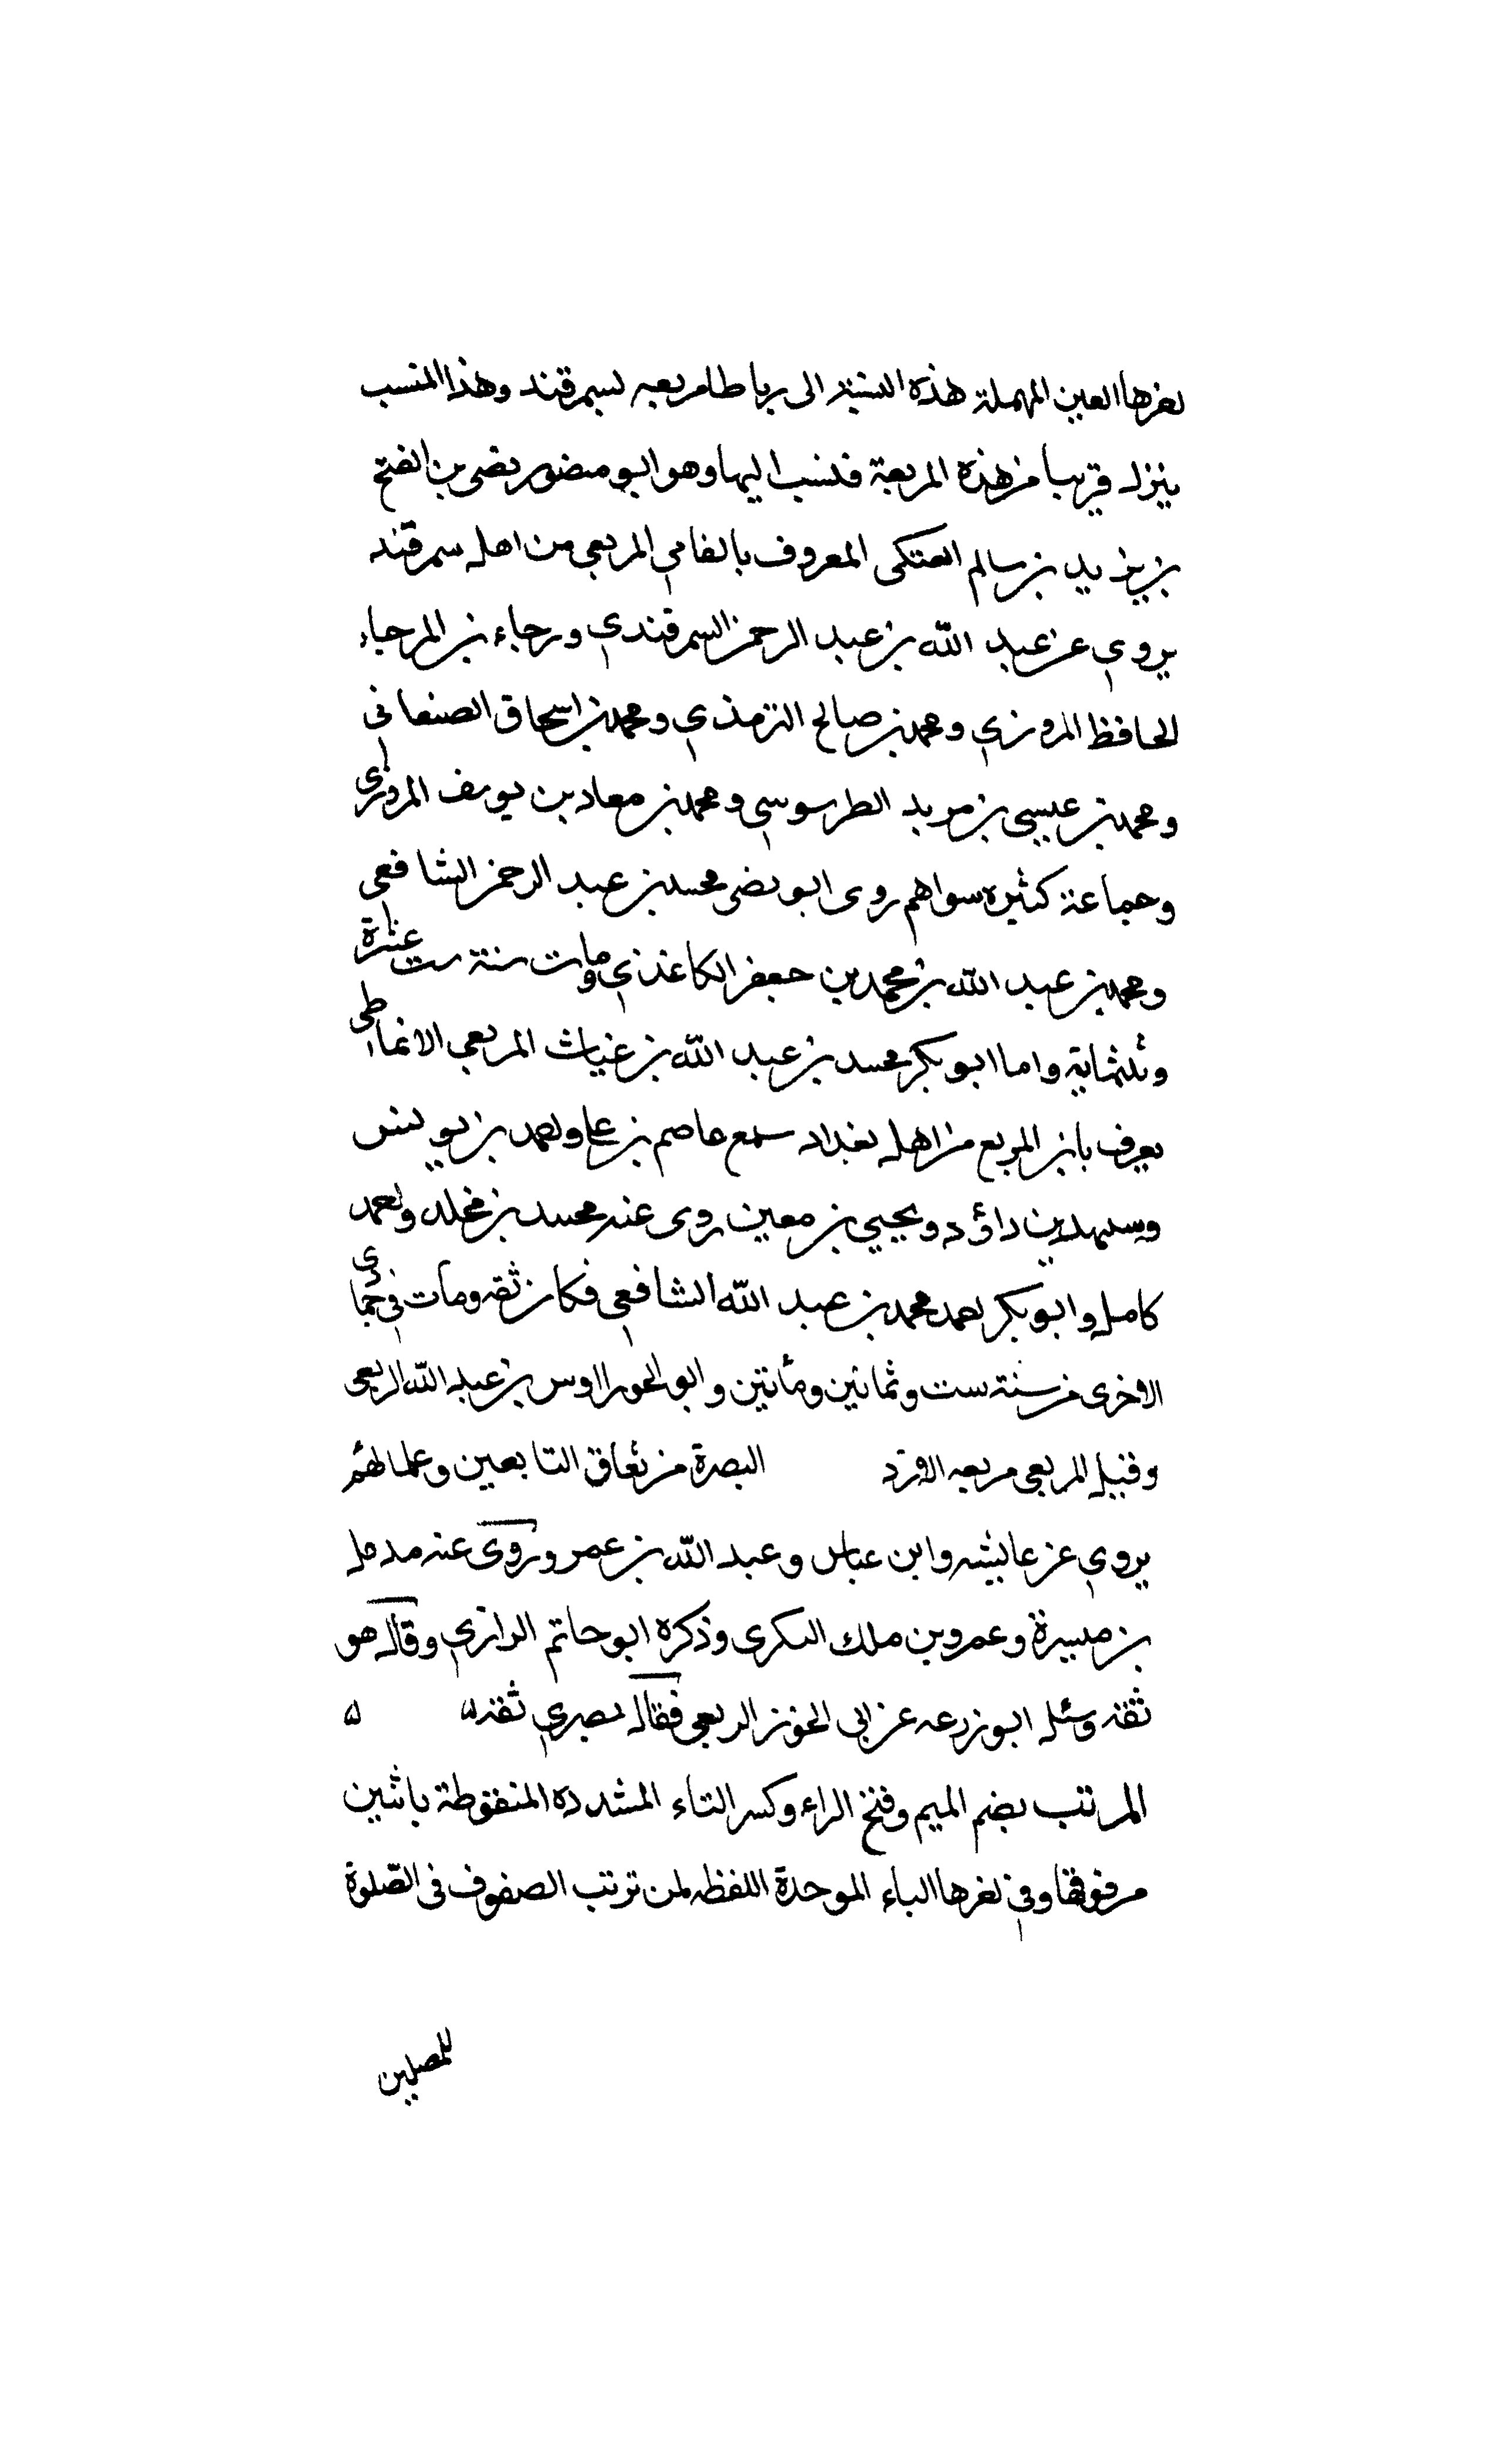 اخرها العين المهملة هذه النسبة الى رباط المربعه بسمرقند وهذا المنسب
ينزل قريبا من هذه المربعة فنسب اليها وهو ابو منصور نصر بن الفتح
بن يزيد بن سالم العتكى المعروف بالفامي المربعي من اهل سمرقند
يروي عن عبد الله بن عبد الرحمن السمرقندي ورجاء بن المرجاء
الحافظ المروزي ومحمد بن صالح الترمذي ومحمد بن اسحاق الصنعاني
ومحمد بن عيسي بن يزيد الطرسوسي ومحمد بن معاد بن يوسف المروزي
وجماعة كثيره سواهم روى ابو نصر محمد بن عبد الرحمن الشافعي
ومحمد بن عبد الله بن محمد بن جعفر الكاغذي ومات سنة ست عشرة
وثلثماية واما ابو بكر محمد بن عبد الله بن غياث المربعي الانماطي
يعرف بابن المربع من اهل بغداد سمع عاصم بن علي واحمد بن يونس
وسليمان بن داؤد ويحيي بن معين روى عنه محمد بن مخلد واحمد
كامل وابو بكر احمد محمد بن عبد الله الشافعي فكان ثقه ومات في جمادى
الاخرى من سنة ست وثمانين ومأتين وابو الجوزا اوس بن عبد الله الربعى
وقيل المربعي مربعه الازد البصرة من ثقاق التابعين وعلمائهم
يروي عن عايشه وابن عباس وعبد الله بن عمر وروى عنه بديل
بن ميسرة وعمرو بن ملك النكرى وذكره ابو حاتم الرازي وقال هو
ثقة وسئل ابو زرعه عن ابى الجوزا الربعي فقال بصري ثقة ۵ ۵
المرتب بضم الميم وفتح الراء وكسر التاء المشدده المنقوطة باثنين
من فوقها وفي اخرها الباء الموحدة اللفظه لمن ترتب الصفوف فى الصّلوة
للمصلين